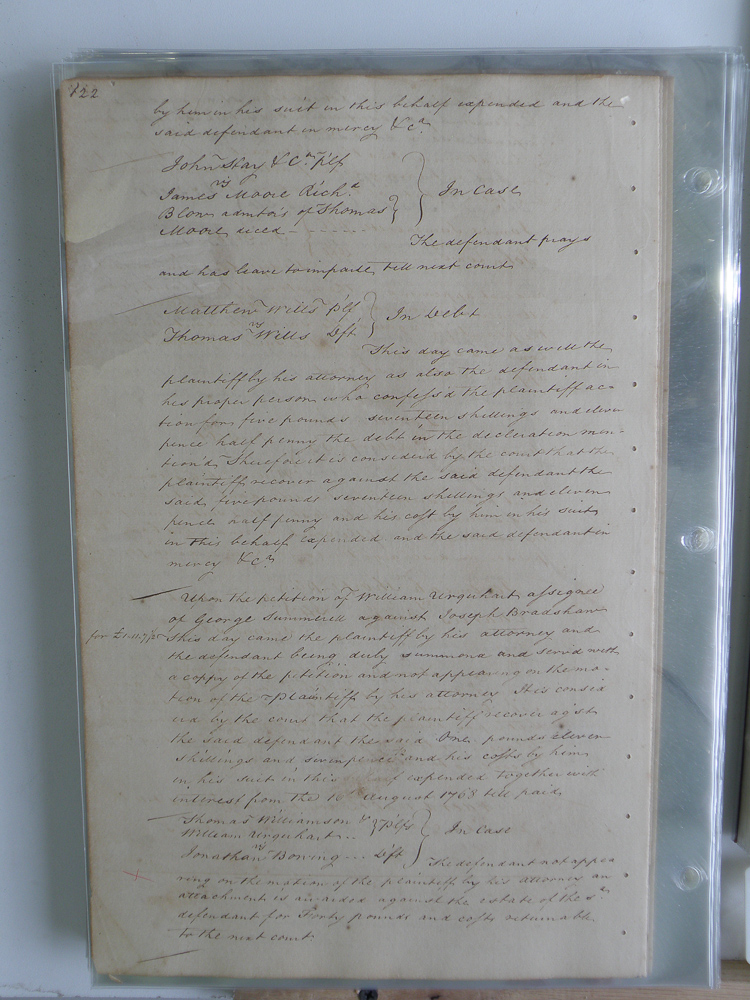 122
by him in his suit in this behalf expended and the
said defendant in mercy &c.a
John Hay & C.o plf
vs
James Moore Rich.d
Blow admtors of Thomas
Moore deced - - - - - -
In Case
The defendant prays
and has leave to imparle till next court
Matthew Wills plf
vs
Thomas Wills Dft
In Debt
This day came as well the
plaintiff by his attorney as also the defendant in
his proper person who confess'd the plaintiff ac=
tion for five pounds seventeen shillings and eleven
pence half penny the debt in the decleration men=
tion'd, Therefore it is consider'd by the court that the
plaintiff recover against the said defendant the
said five pounds seventeen shellings and eleven
pence half penny and his cost by him in his suit
in this behalf expended and the said defendant in
mercy &c.a
Upon the petition of William Urquhart assignee
of George Summerell against Joseph Bradshaw
for £1..11..7
this day came the plaintiff by his attorney and
the defendant being duly summond and serv'd with
a copy of the petition and not appearing on the mo=
tion of the plaintiff by his attorney It is consid
erd by the court that the plaintiff recover ag.st
the said defendant the said One pounds eleven
shillings and seven pence and his costs by him
in his suit in this behalf expended together with
interest from the 10th August 1768 till paid
Thomas Williamson &
William Urquhart ..
plfs
vs
Jonathan Bowing ... Dft
In Case
The defendant not appea
ring on the motion of the plaintiff by his attorney an
attachment is awarded against the estate of the s.d
defendant for Forty pounds and costs returnable
to the next court